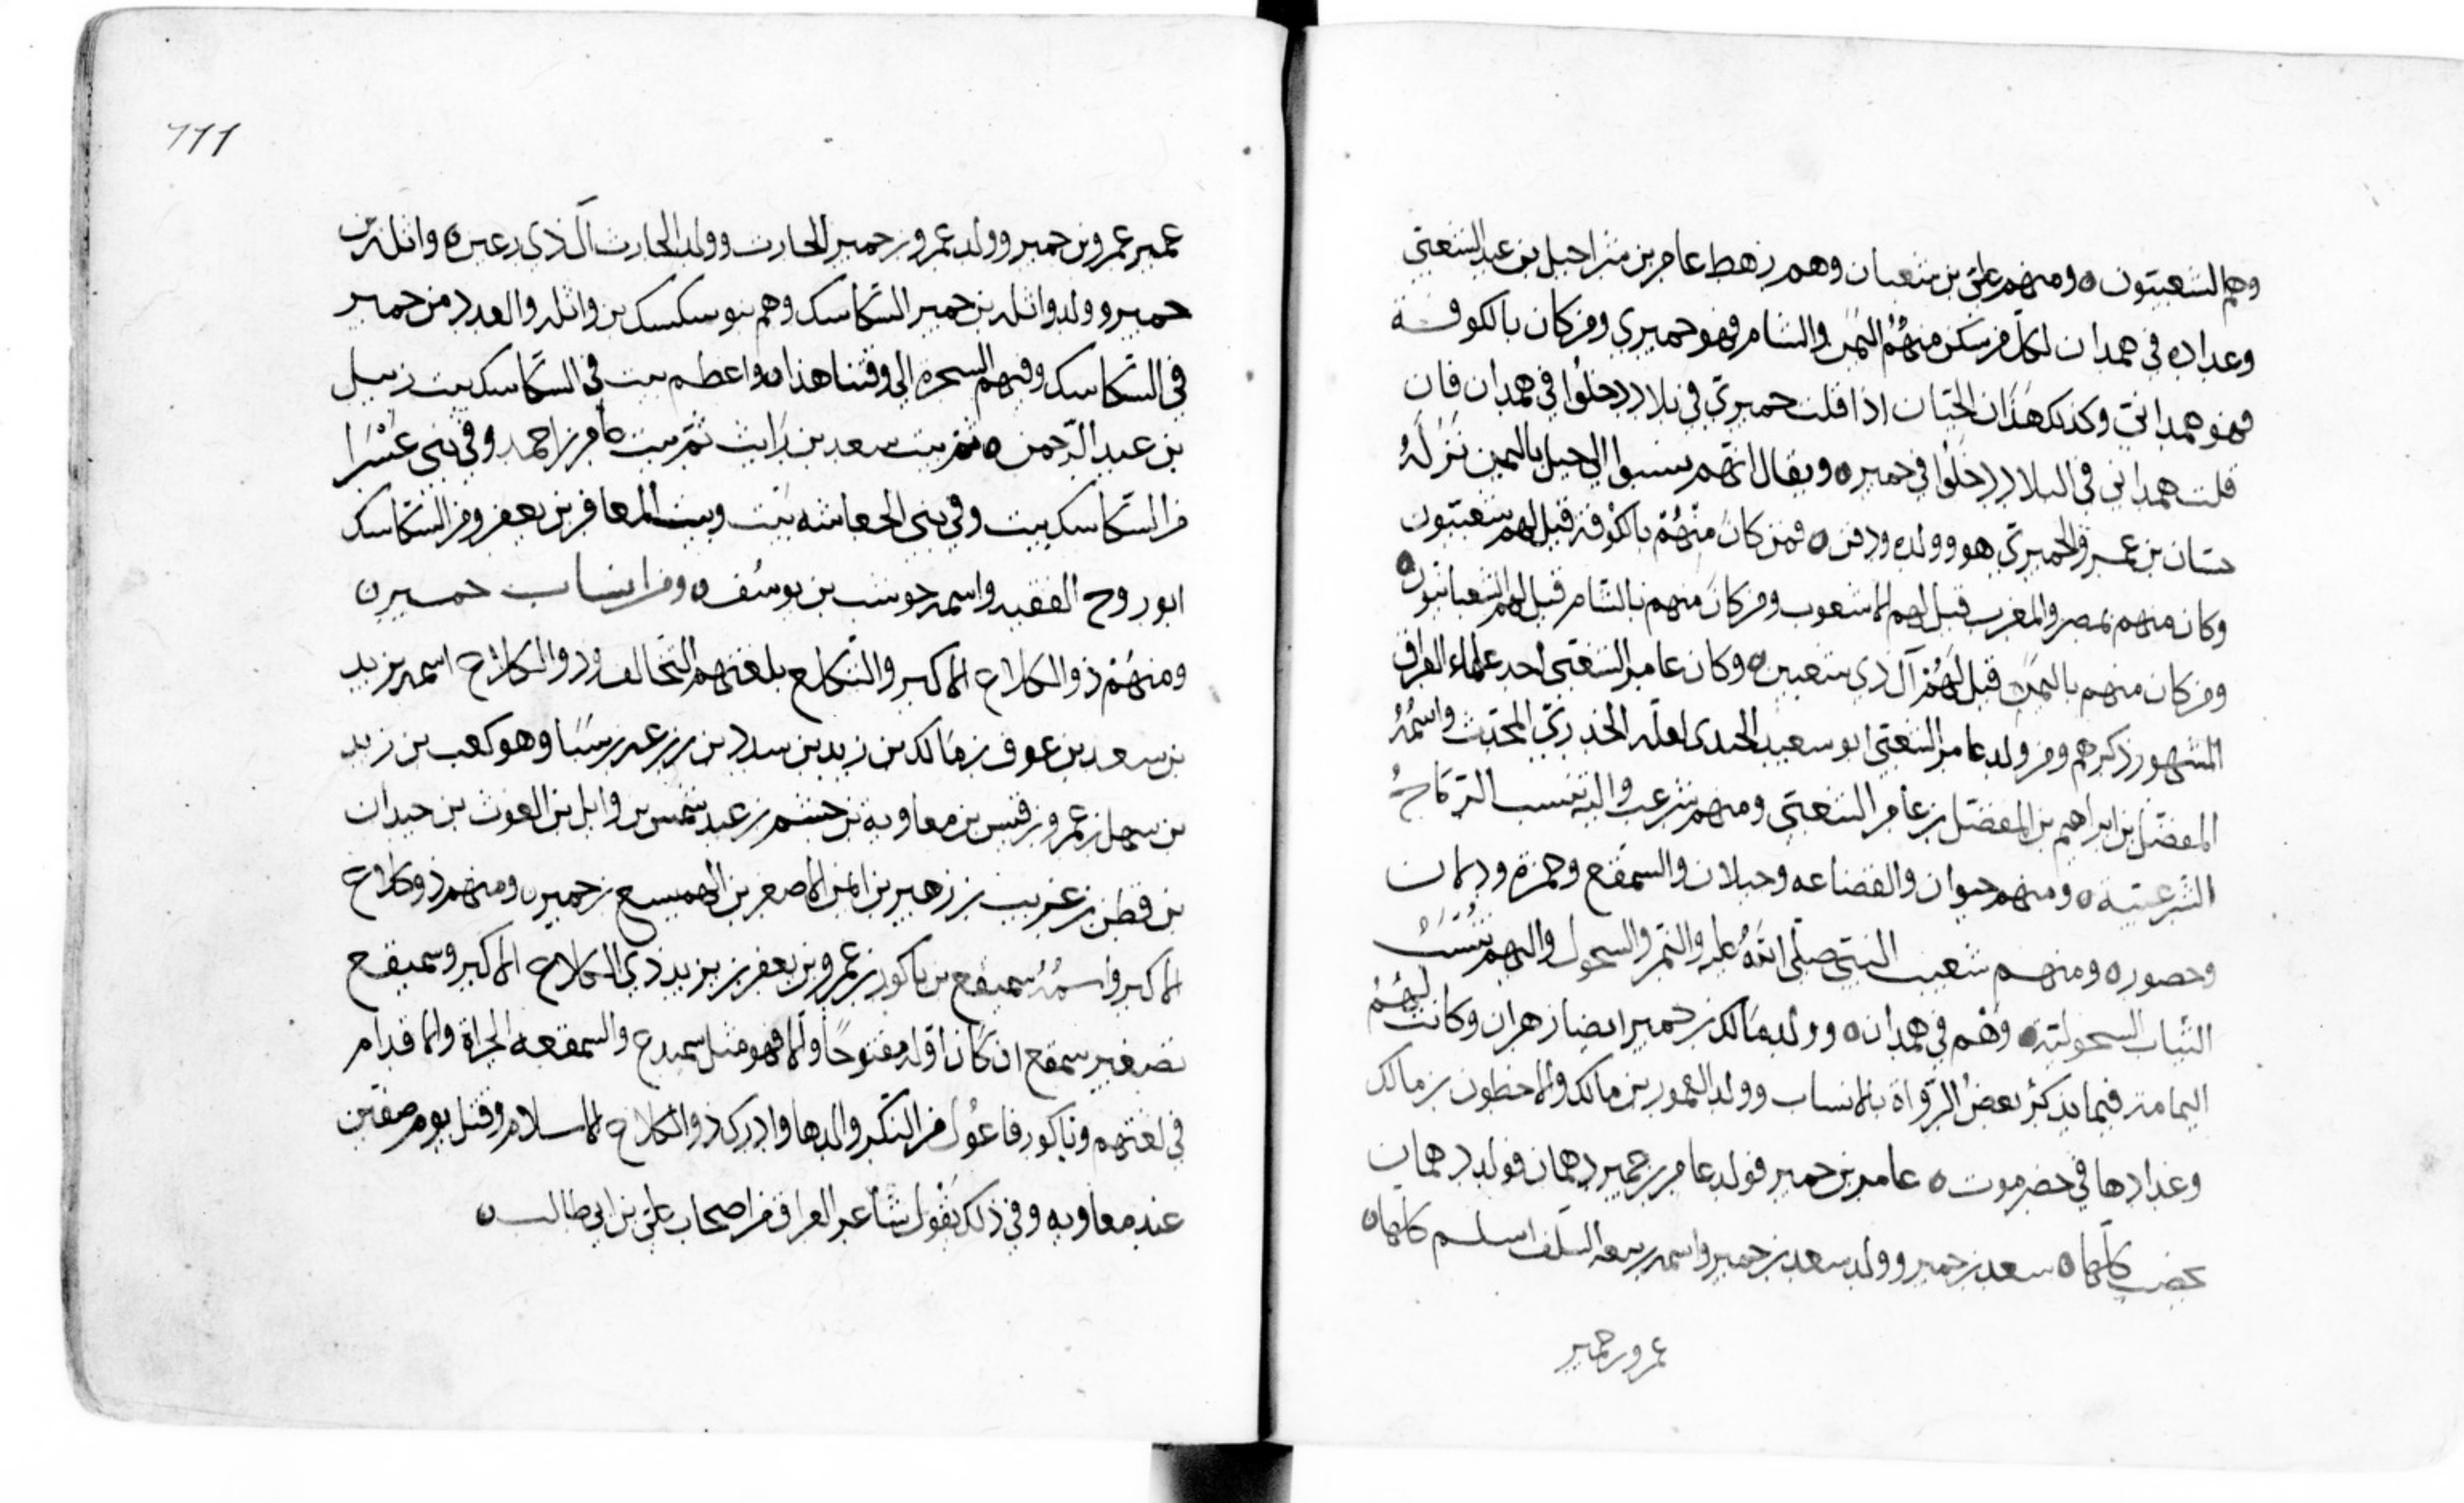 وهم الشعبيون ومنهم علي بن شعبان وهم رهط عامر بن شراحيل بن عبد الشعبي
وعداده في همدان لكل من سكن منهم اليمن والشام فهو حميري ومن كان بالكوفة
فهو همداني وكذلك هذان الحيان اذا قلت حميري في بلاد دخلوا في همدان فان
قلت همداني في البلاد دخلوا في حمير ويقال انهم نسبوا الى جبل باليمن نزله
حسان بن عمرو الحميري هو وولده ودفن فمن كان منهم بالكوفة قيل لهم شعبيون
وكان منهم بمصر والمغرب قيل لهم الاشعوب ومن كان منهم بالشام قيل لهم الشعبانيون
ومن كان منهم باليمن قيل لهم آل ذي شعبين وكان عامر الشعبي احد علماء العراق
المشهور ذكرهم ومن ولد عامر الشعبي ابو سعيد الجندى لعله الخدري المحدث واسمه
المفضل بن ابراهيم بن المفضل بن عامر الشعبي ومنهم شرعب واليه تنسب الرماح
الشرعبية ومنهم حيوان والقضاعه وجبلان والسمقع وحمزة ودلان
وحضوره ومنهم شعيب النبي صلى الله عليه والنمر والسحول واليهم تنسب
الثياب السحولية وهم في همدان وولد مالك بن حمير ايضا زهران وكانت لهم
اليمامة فيما يذكر بعض الرواة بالانساب وولد العمور بن مالك والاخطون بن مالك
وعدادها في حضرموت عامر بن حمير فولد عامر بن حمير دهمان فولد دهمان
يحضب كلها سعد بن حمير وولد سعد بن حمير واسمه ربيعه السلف اسلم كلها
عمرو بن حمير
١١١
عمير عمرو بن حمير وولد عمرو بن حمير الحارث وولد الحارث آل ذي رعين واثلة بن
حمير وولد واثله بن حمير السكاسك وهم بنو سكسك بن واثله والعدد من حمير
في السكاسك وفيهم السحره الى وقتنا هذا واعظم بيت في السكاسك بيت زبيل
بن عبد الرحمن ثم بيت سعد بن رايث ثم بيت كامر بن احمد وفي بني عشرا
من السكاسك بيت وفي بني الجعاشه بيت وبيت المعافر بن يعفر ومن السكاسك
ابو روح الفقيه واسمه حوشب بن يوسف ومن انساب حمير
ومنهم ذو الكلاع الاكبر والتكلع بلغتهم التحالف وذو الكلاع اسمه يزيد
بن سعد بن عوف بن مالك بن زيد بن سدد بن زرعه بن سبا وهو كعب بن زيد
بن سهل بن عمرو بن قيس بن معاويه بن جشم بن عبد شمس بن وايل بن الغوث بن حيدان
بن قطن بن عريب بن زهير بن ايمن الاصغر بن الهميسع بن حمير ومنهم ذو كلاع
الاكبر واسمه سميفع بن ناكور بن عمرو بن يعفر بن يزيد ذي الكلاع الاكبر وسميفع
تصغير سمقع ان كان اوله مفتوحا والا فهو مثل سميدع والسمقعه الجراة والاقدام
في لغتهم وناكور فاعول من النكر والدها وادرك ذو الكلاع الاسلام وقتل يوم صفين
عند معاويه وفي ذلك يقول شاعر العراق من اصحاب علي بن ابي طالب